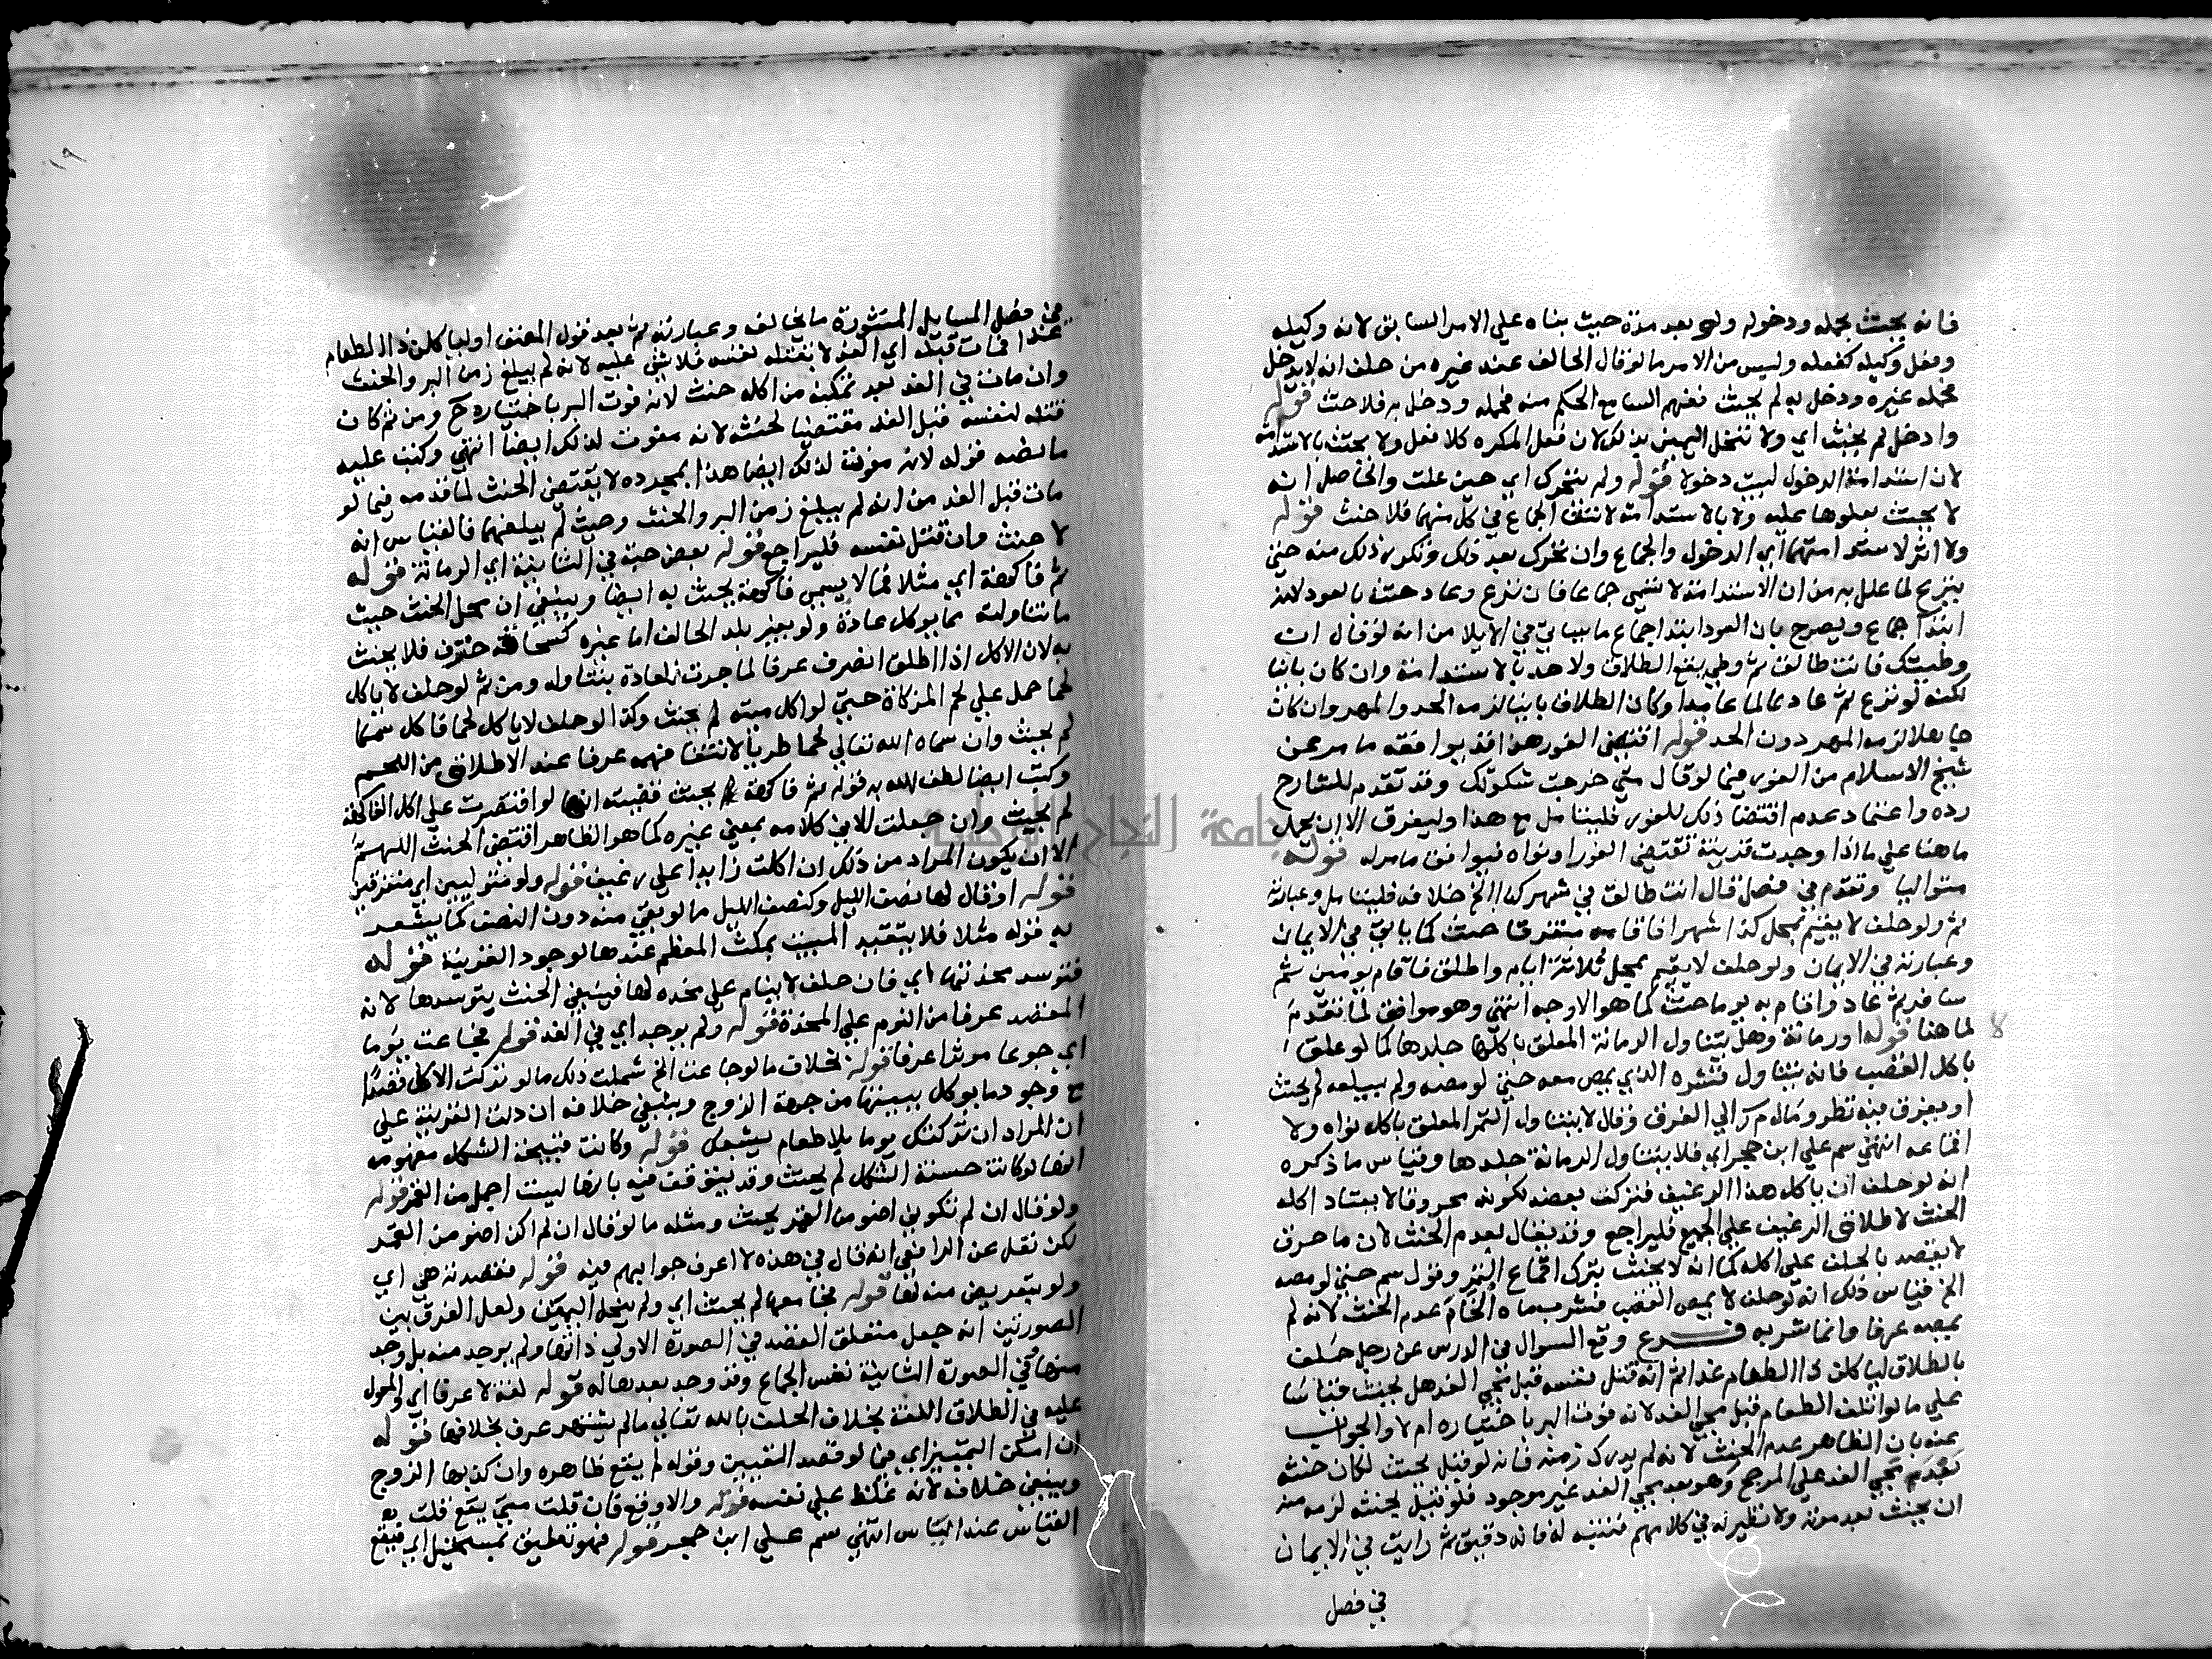 فانه يحنث بحمله ودخوله ولو بعد مدة حيث بناه علي الامر السابق لانه وكيله
وفعل وكيله كفعله وليس من الامر ما لو قال الحالف عند غيره من حلف انه لا يدخل
فحمله غيره ودخل به لم يحنث ففهم السامع الحكم منه فحمله ودخل به فلا حنث قوله
وادخل لم يحنث اي ولا تنحل اليمين بذلك لان فعل المكره كلا فعل ولا يحنث بالاستدامة
لان استدامة الدخول ليست دخولا قوله ولم يتحرك اي حين علت والحاصل انه
لا يحنث بعلوها عليه ولا بالاستدامة لانتفا الجماع في كل منهما فلا حنث قوله
ولا اثر لاستدامتهما اي الدخول والجماع وان تحرك بعد ذلك وتكرر ذلك منه حتي
ينزع لما علل به من ان الاستدامة لا تسمي جماعا فان نزع وعاد حنث بالعود لانه
ابتدا جماع ويصرح بان العود ابتدا جماع ما سياتي في الايلا من انه لو قال ان
وطيتك فانت طالق ثم وطي يقع الطلاق ولا حد بالاستدامة وان كان باينا
لكنه لو نزع ثم عاد عالما عامدا وكان الطلاق باينا لزمه الحد والمهر وان كان
جاهلا لزمه المهر دون الحد قوله اقتضي الفور هذا قد يوافقه ما مر عن
شيخ الاسلام من الفور فيما لو قال متي خرجت شكوتك وقد تقدم للشارح
رده واعتماد عدم اقتضا ذلك للفور فليتامل مع هذا وليفرق الا ان يحمل
ما هنا علي ما اذا وجدت قرينة تقتضي الفور او نواه فيوافق ما مر له قوله
متواليا وتقدم في فصل قال انت طالق في شهر كذا الخ خلافه فليتامل وعبارته
ثم ولو حلف لا يقيم بمحل كذا شهرا فاقامه متفرقا حنث كما ياتي في الايمان
وعبارته في الايمان ولو حلف لا يقيم بمحل ثلاثة ايام واطلق فاقام يومين ثم
سافر ثم عاد واقام به يوما حنث كما هو الاوجه انتهي وهو موافق لما تقدم
لما هنا قوله او رمانة وهل يتناول الرمانة المعلق باكلها جلدها كما لو علق
باكل القصب فانه يتناول قشره الذي يمص معه حتي لو مصه ولم يبلعه لم يحنث
او يفرق فيه نظر ومال م ر الي الفرق وقال لا يتناول التمر المعلق باكله نواه ولا
اقماعه انتهي سم علي ابن حجر اي فلا يتناول الرمانة جلدها وقياس ما ذكره
انه لو حلف ان ياكل هذا الرغيف فترك بعضه لكونه محروقا لا يعتاد اكله
الحنث لاطلاق الرغيف علي الجميع فليراجع وقد يقال بعدم الحنث لان ما حرق
لا يقصد بالحلف علي اكله كما انه لا يحنث بترك اقماع التمر وقول سم حتي لو مصه
الخ قياس ذلك انه لو حلف لا يمص القصب فشرب ماه الخام عدم الحنث لانه لم
يمصه عرفا وانما شربه فرع وقع السوال في الدرس عن رجل حلف
بالطلاق لياكلن ذا الطعام غدا ثم انه قتل نفسه قبل مجي الغد هل يحنث قياسا
علي ما لو اتلف الطعام قبل مجي الغد لانه فوت البر باختياره ام لا والجواب
عنه بان الظاهر عدم الحنث لانه لم يدرك زمنه فانه لو قيل بحنث لكان حنثه
بعد مجي الغد علي المرجح وهو بعد مجي الغد غير موجود فلو قيل بحنثه لزمه منه
ان يحنث بعد موته ولا نظير له في كلامهم فتنبه له فانه دقيق ثم رايت في الايمان
في فصل
في فصل المسايل المنثورة ما يخالف وعبارته ثم بعد قول المصنف او لياكلن ذا الطعام
غدا فمات قبله اي الغد لا بقتله نفسه فلا شي عليه لانه لم يبلغ زمن البر والحنث
وان مات في الغد بعد تمكنه من اكله حنث لانه فوت البر باختياره ح ومن ثم كان
قتله لنفسه قبل الغد مقتضيا لحنثه لانه مفوت لذلك ايضا انتهي وكتب عليه
ما نصه قوله لانه مفوت لذلك ايضا هذا بمجرده لا يقتضي الحنث لما قدمه فيما لو
مات قبل الغد من انه لم يبلغ زمن البر والحنث وحيث لم يبلغهما فالقياس انه
لا حنث وان قتل نفسه فليراجع قوله بعض حبة في الثانية اي الرمانة قوله
ثم فاكهة اي مثلا فما لا يسمي فاكهة يحنث به ايضا وينبغي ان محل الحنث حيث
ما تناولته مما يوكل عادة ولو بغير بلد الحالف اما غيره كسحاقة خزف فلا يحنث
به لان الاكل اذا اطلق انصرف عرفا لما جرت العادة بتناوله ومن ثم لو حلف لا ياكل
لحما حمل علي لحم المذكاة حتي لو اكل ميتة لم يحنث وكذا لو حلف لا ياكل لحما فاكل سمكا
لم يحنث وان سماه الله تعالي لحما طريا لانتفا فهمه عرفا عند الاطلاق من اللحم
وكتب ايضا لطف الله به قوله ثم فاكهة لم يحنث قضيته انها لو اقتصرت علي اكل الفاكهة
لم يحنث وان جعلت الا في كلامه بمعني غيره كما هو الظاهر اقتضي الحنث اللهم
الا ان يكون المراد من ذلك ان اكلت زايدا علي رغيف قوله ولو متواليين اي متفرقين
قوله او قال لها نصف الليل وكنصف الليل ما لو بقي منه دون النصف كما يشعر
به قوله مثلا فلا يتقيد المبيت بمكث المعظم عندها لوجود القرينة قوله
فتوسد مخدتها اي فان حلف لا ينام علي مخدة لها فينبغي الحنث بتوسدها لانه
المقصد عرفا من النوم علي المخدة قوله ولم يوجد اي في الغد قوله فجاعت يوما
اي جوعا موثرا عرفا قوله بخلاف ما لو جاعت الخ شملت ذلك ما لو تركت الاكل قصدا
مع وجود ما يوكل ببيتها من جهة الزوج وينبغي خلافه ان دلت القرينة علي
ان المراد ان تركتك يوما بلا طعام يشبعك قوله وكانت قبيحة الشكل مفهومه
انها لو كانت حسنة الشكل لم يحنث وقد يتوقف فيه بانها ليست اجمل من القمر قوله
ولو قال ان لم تكوني اضو من القمر يحنث ومثله ما لو قال ان لم اكن اضو من القمر
لكن نقل عن الرافعي انه قال في هذه لا اعرف جوابهم فيه قوله فقصدته هي اي
ولو بتعريض منه لها قوله فجامعها لم يحنث اي ولم ينحل اليمين ولعل الفرق بين
الصورتين انه جعل متعلق القصد في الصورة الاولي ذاتها ولم يوجد منه بل وجد
منها في الصورة الثانية نفس الجماع وقد وجد بعدها له قوله لغة لا عرفا اي والمعول
عليه في الطلاق اللغة بخلاف الحلف بالله تعالي ما لم يشتهر عرف بخلافها قوله
ان امكن التمييز اي فيما لو قصد التعيين وقوله لم يقع ظاهره وان كذبها الزوج
وينبغي خلافه لانه غلظ علي نفسه قوله والاوقع فان قلت متي يقع قلت يه
القياس عند الياس انتهي سم علي ابن حجر قوله فهو تعليق بمستحيل اي فيقع